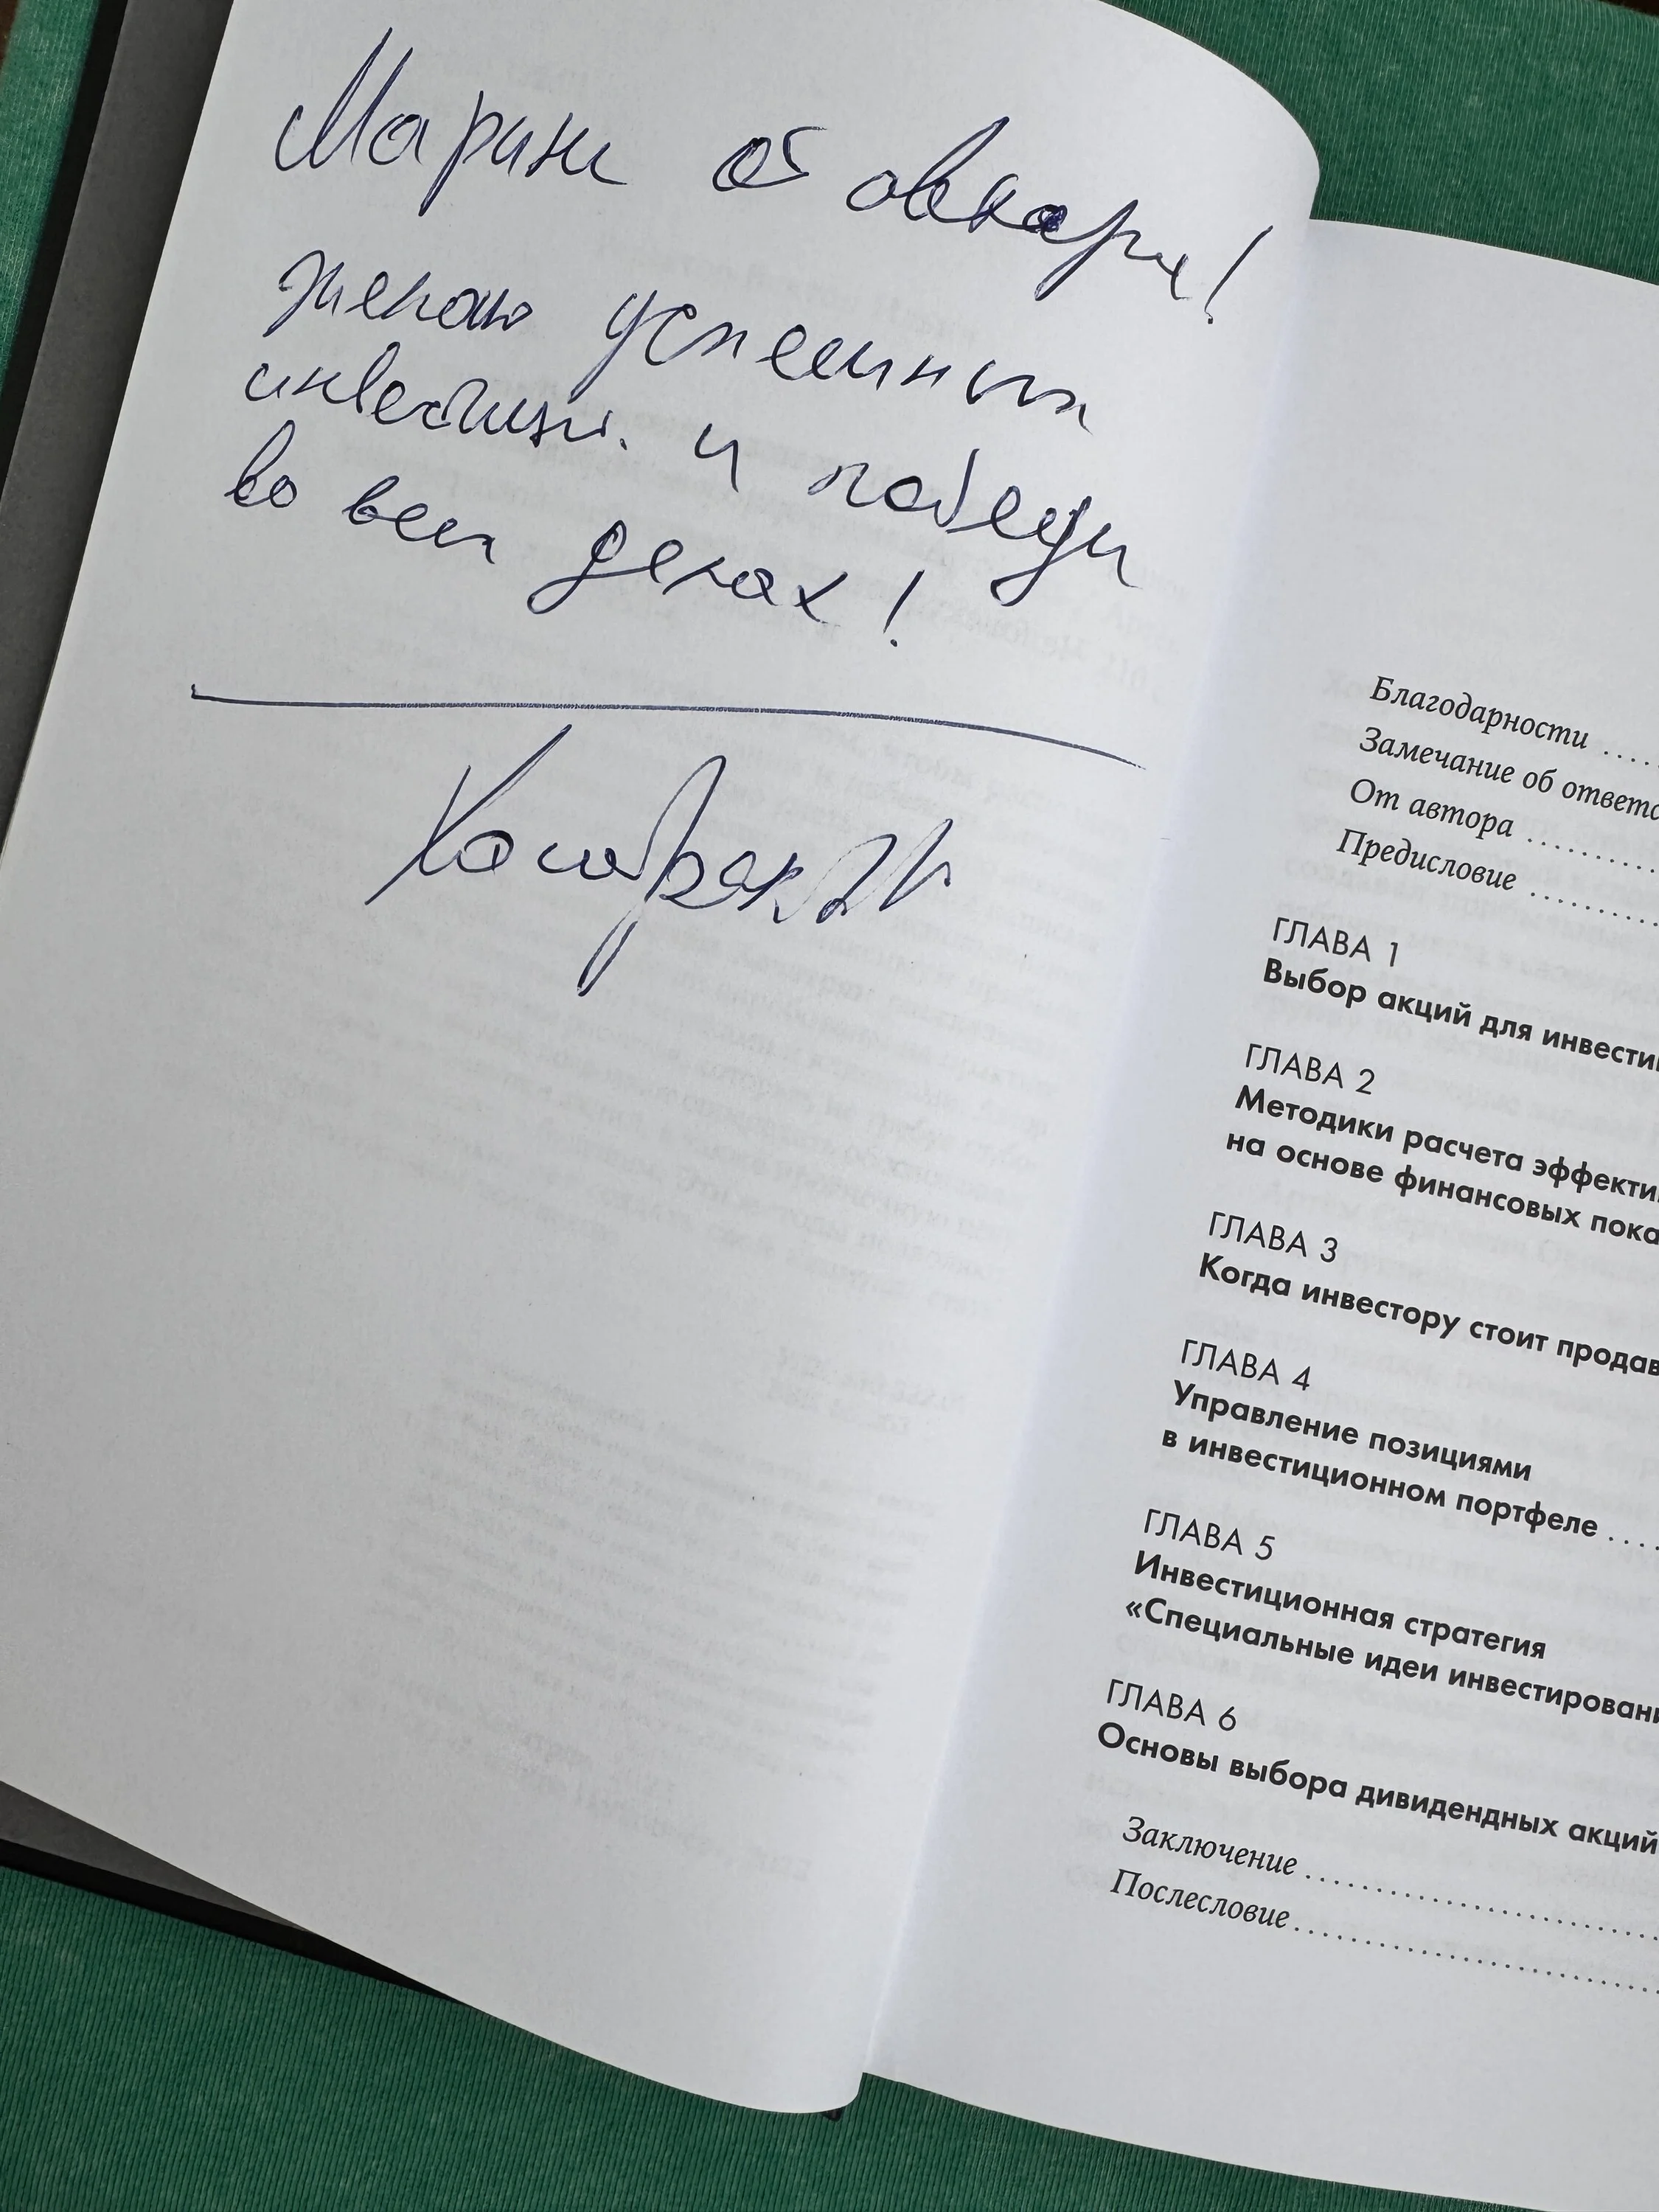 Марине от автора!
Желаю успешных
инвестиций и победы
во всех делах!
Благодарности ....
Замечание об ответс
От автора ..........
Предисловие ..........
ГЛАВА 1
Выбор акций для инвести
ГЛАВА 2
Методики расчета эффекти
на основе финансовых пока
ГЛАВА 3
Когда инвестору стоит продав
ГЛАВА 4
Управление позициями
в инвестиционном портфеле ....
ГЛАВА 5
Инвестиционная стратегия
«Специальные идеи инвестировани
ГЛАВА 6
Основы выбора дивидендных акций
Заключение ..........................
Послесловие ..........................